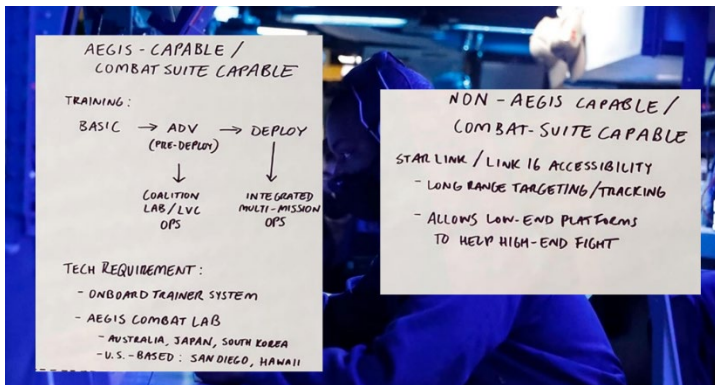 AEGIS - CAPABLE /
COMBAT SUITE CAPABLE
TRAINING:
BASIC → ADV → DEPLOY
(PRE-DEPLOY)
↓ ↓
COALITION INTEGRATED
LAB/LVC MULTI-MISSION
OPS OPS
TECH REQUIREMENT:
- ONBOARD TRAINER SYSTEM
- AEGIS COMBAT LAB
- AUSTRALIA, JAPAN, SOUTH KOREA
- U.S.-BASED: SAN DIEGO, HAWAII
NON - AEGIS CAPABLE /
COMBAT-SUITE CAPABLE
STARLINK / LINK 16 ACCESSIBILITY
- LONG RANGE TARGETING/TRACKING
- ALLOWS LOW-END PLATFORMS
TO HELP HIGH-END FIGHT